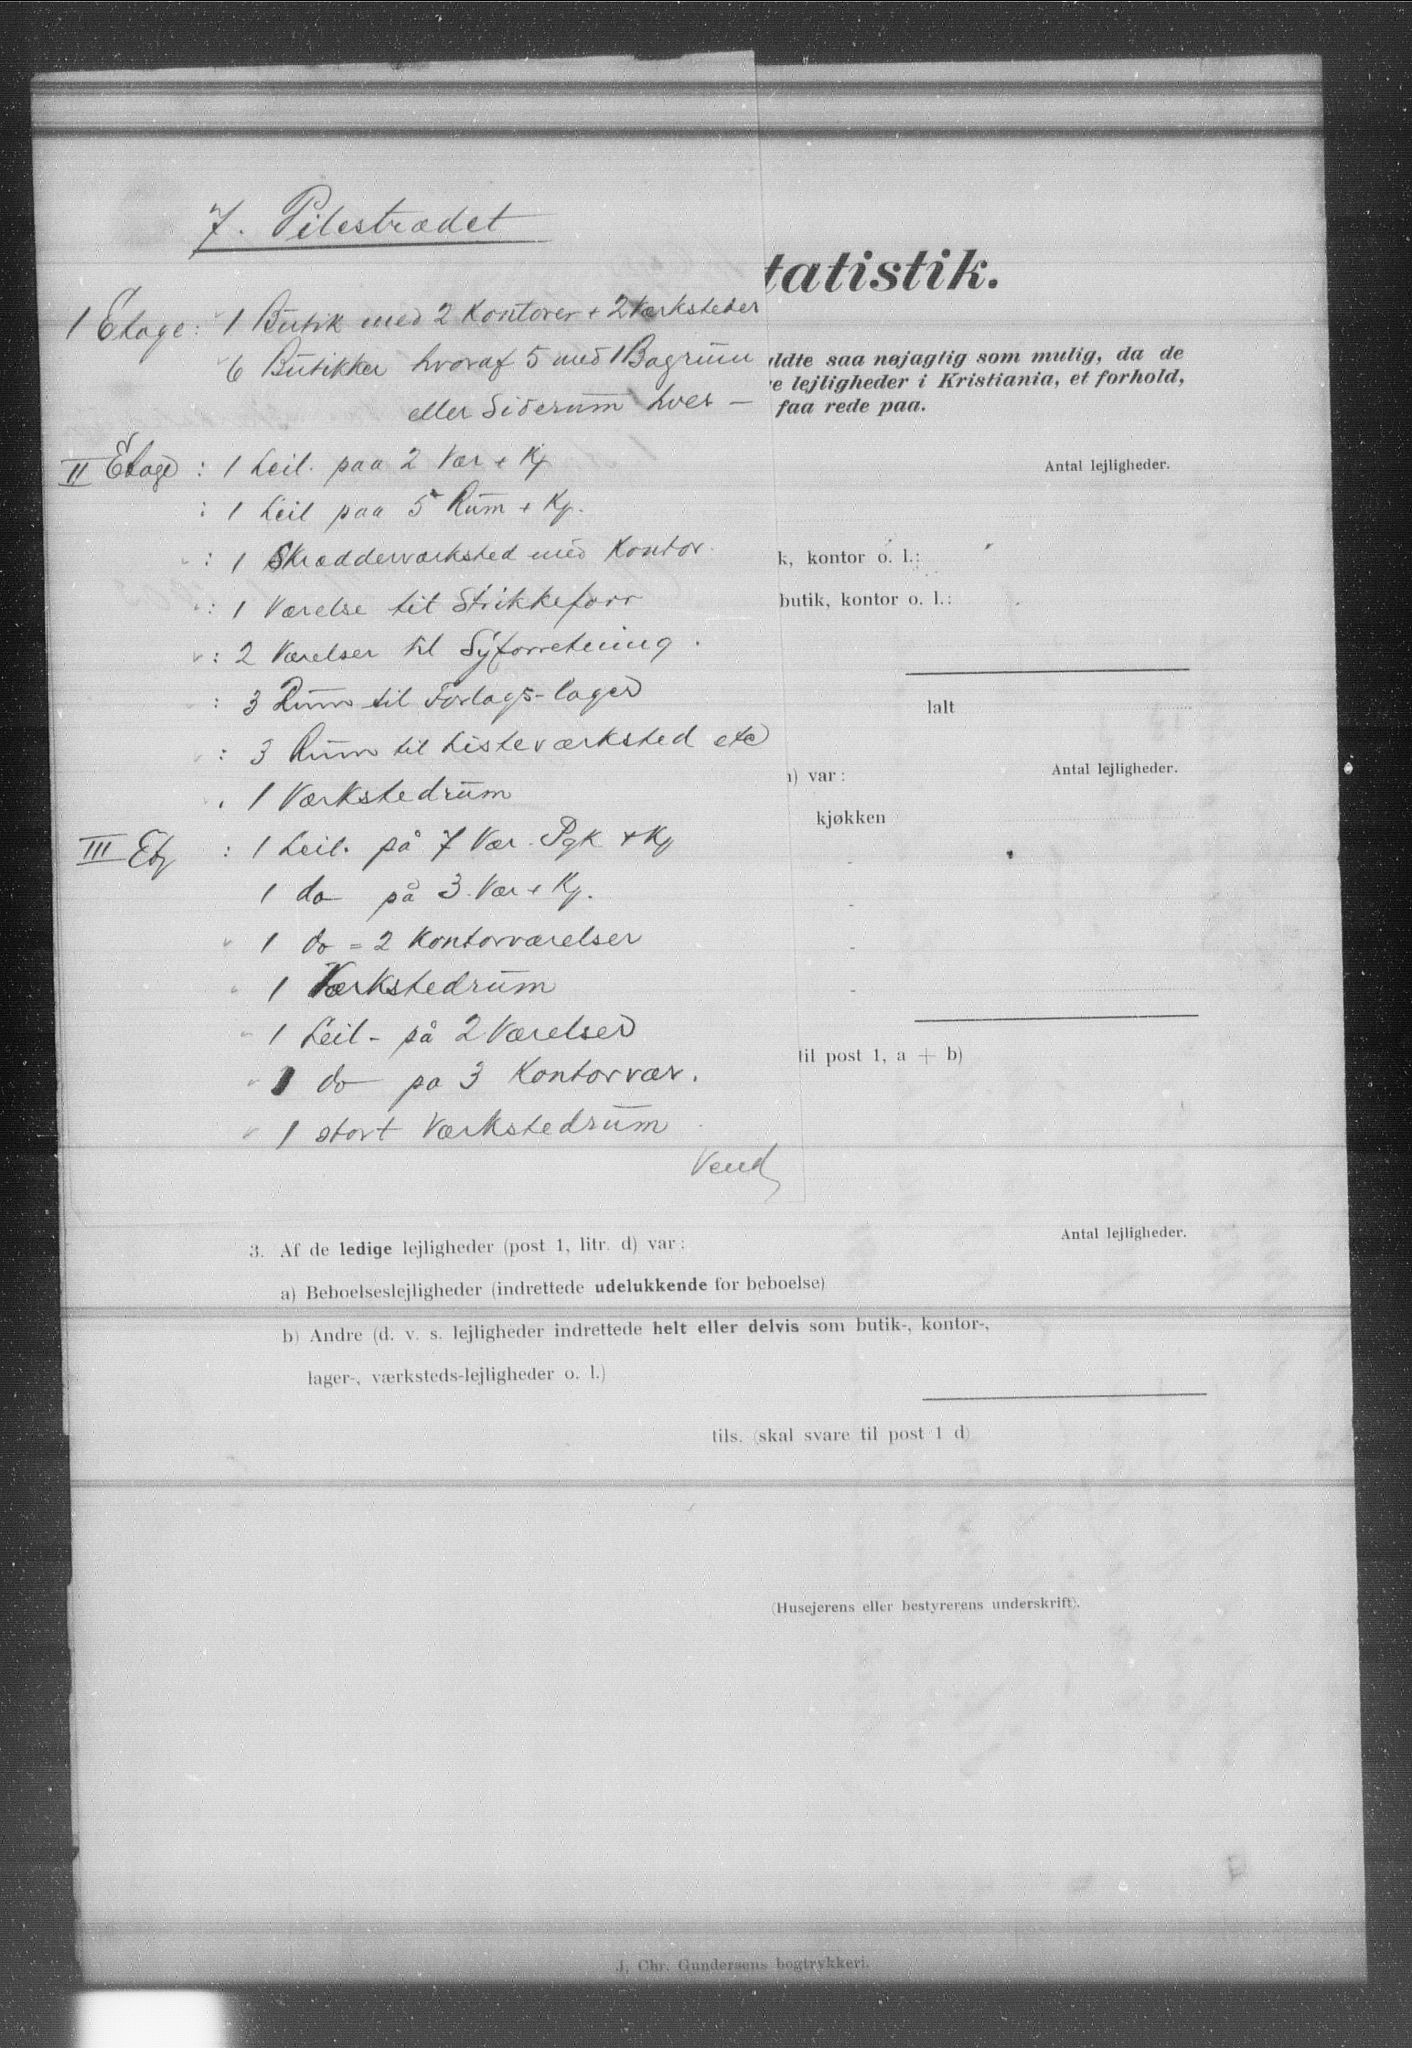 7. Pilestrædet
1 Etage: 1 Butik med 2 Kontorer + 2 Værksteder
6 Butikker hvoraf 5 med 1 Bagrum
eller Siderum hver —
II Etage : 1 Leil. paa 2 Vær + Kj
: 1 Leil paa 5 Rum + Kj.
: 1 Skrædderværksted med Kontor.
: 1 Værelse til Strikkeforr
: 2 Værelser til Syforretning.
: 3 Rum til Forlags-lager
: 3 Rum til Listeværksted etc
. 1 Værkstedrum
III Etg : 1 Leil. på 7 Vær. Pgk + Kj
1 do på 3 Vær + Kj.
1 do = 2 Kontorværelser
1 Værkstedrum
1 Leil - på 2 Værelser
1 do pa 3 Kontorvær.
1 stort Værkstedrum
Vend
tatistik.
ldte saa nøjagtig som mulig, da de
e lejligheder i Kristiania, et forhold,
faa rede paa.
Antal lejligheder.
k, kontor o. l.:
butik, kontor o. l.:
Ialt
) var:
Antal lejligheder.
kjøkken
-
-
-
-
til post 1, a + b)
3. Af de ledige lejligheder (post 1, litr. d) var:
Antal lejligheder.
a) Beboelseslejligheder (indrettede udelukkende for beboelse)
b) Andre (d. v. s. lejligheder indrettede helt eller delvis som butik-, kontor-,
lager-, værksteds-lejligheder o. l.)
tils. (skal svare til post 1 d)
(Husejerens eller bestyrerens underskrift).
J. Chr. Gundersens bogtrykkeri.